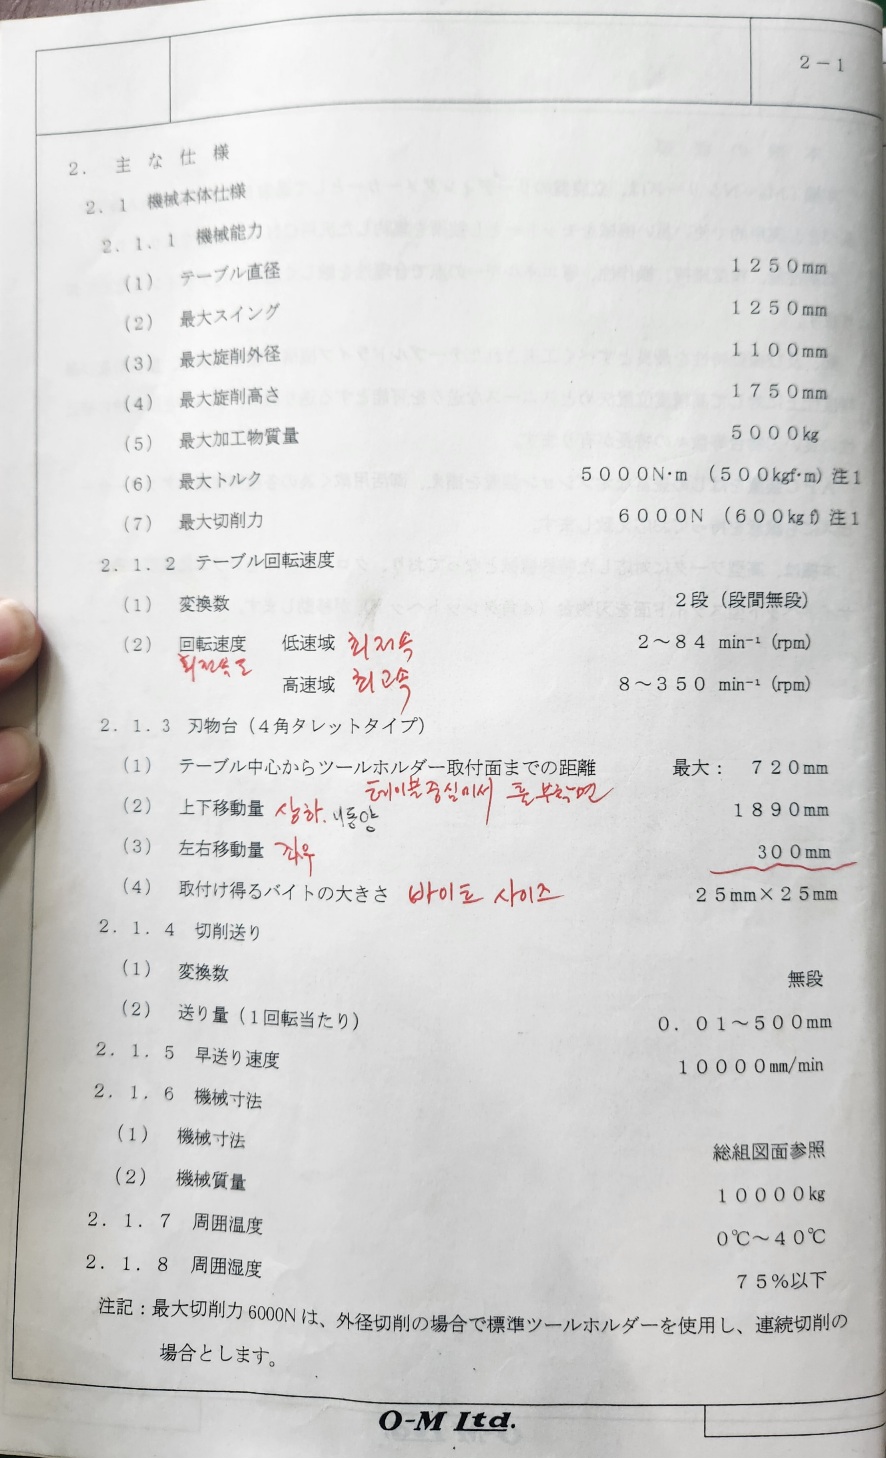 2－1
2. 主な仕様
2.1 機械本体仕様
2.1.1 機械能力
(1) テーブル直径 1250mm
(2) 最大スイング 1250mm
(3) 最大旋削外径 1100mm
(4) 最大旋削高さ 1750mm
(5) 最大加工物質量 5000kg
(6) 最大トルク 5000N・m (500kgf・m) 注1
(7) 最大切削力 6000N (600kgf) 注1
2.1.2 テーブル回転速度
(1) 変換数 2段 (段間無段)
(2) 回転速度 低速域 최저속 2～84 min⁻¹ (rpm)
회전속도
高速域 최고속 8～350 min⁻¹ (rpm)
2.1.3 刃物台 (4角タレットタイプ)
(1) テーブル中心からツールホルダー取付面までの距離 最大: 720mm
테이블중심에서 툴부착면
(2) 上下移動量 상하.이동양 1890mm
(3) 左右移動量 좌우 300mm
(4) 取付け得るバイトの大きさ 바이트 사이즈 25mm×25mm
2.1.4 切削送り
(1) 変換数 無段
(2) 送り量 (1回転当たり) 0.01～500mm
2.1.5 早送り速度 10000mm/min
2.1.6 機械寸法
(1) 機械寸法 総組図面参照
(2) 機械質量 10000kg
2.1.7 周囲温度 0℃～40℃
2.1.8 周囲湿度 75%以下
注記:最大切削力6000Nは、外径切削の場合で標準ツールホルダーを使用し、連続切削の
場合とします。
O-M Ltd.